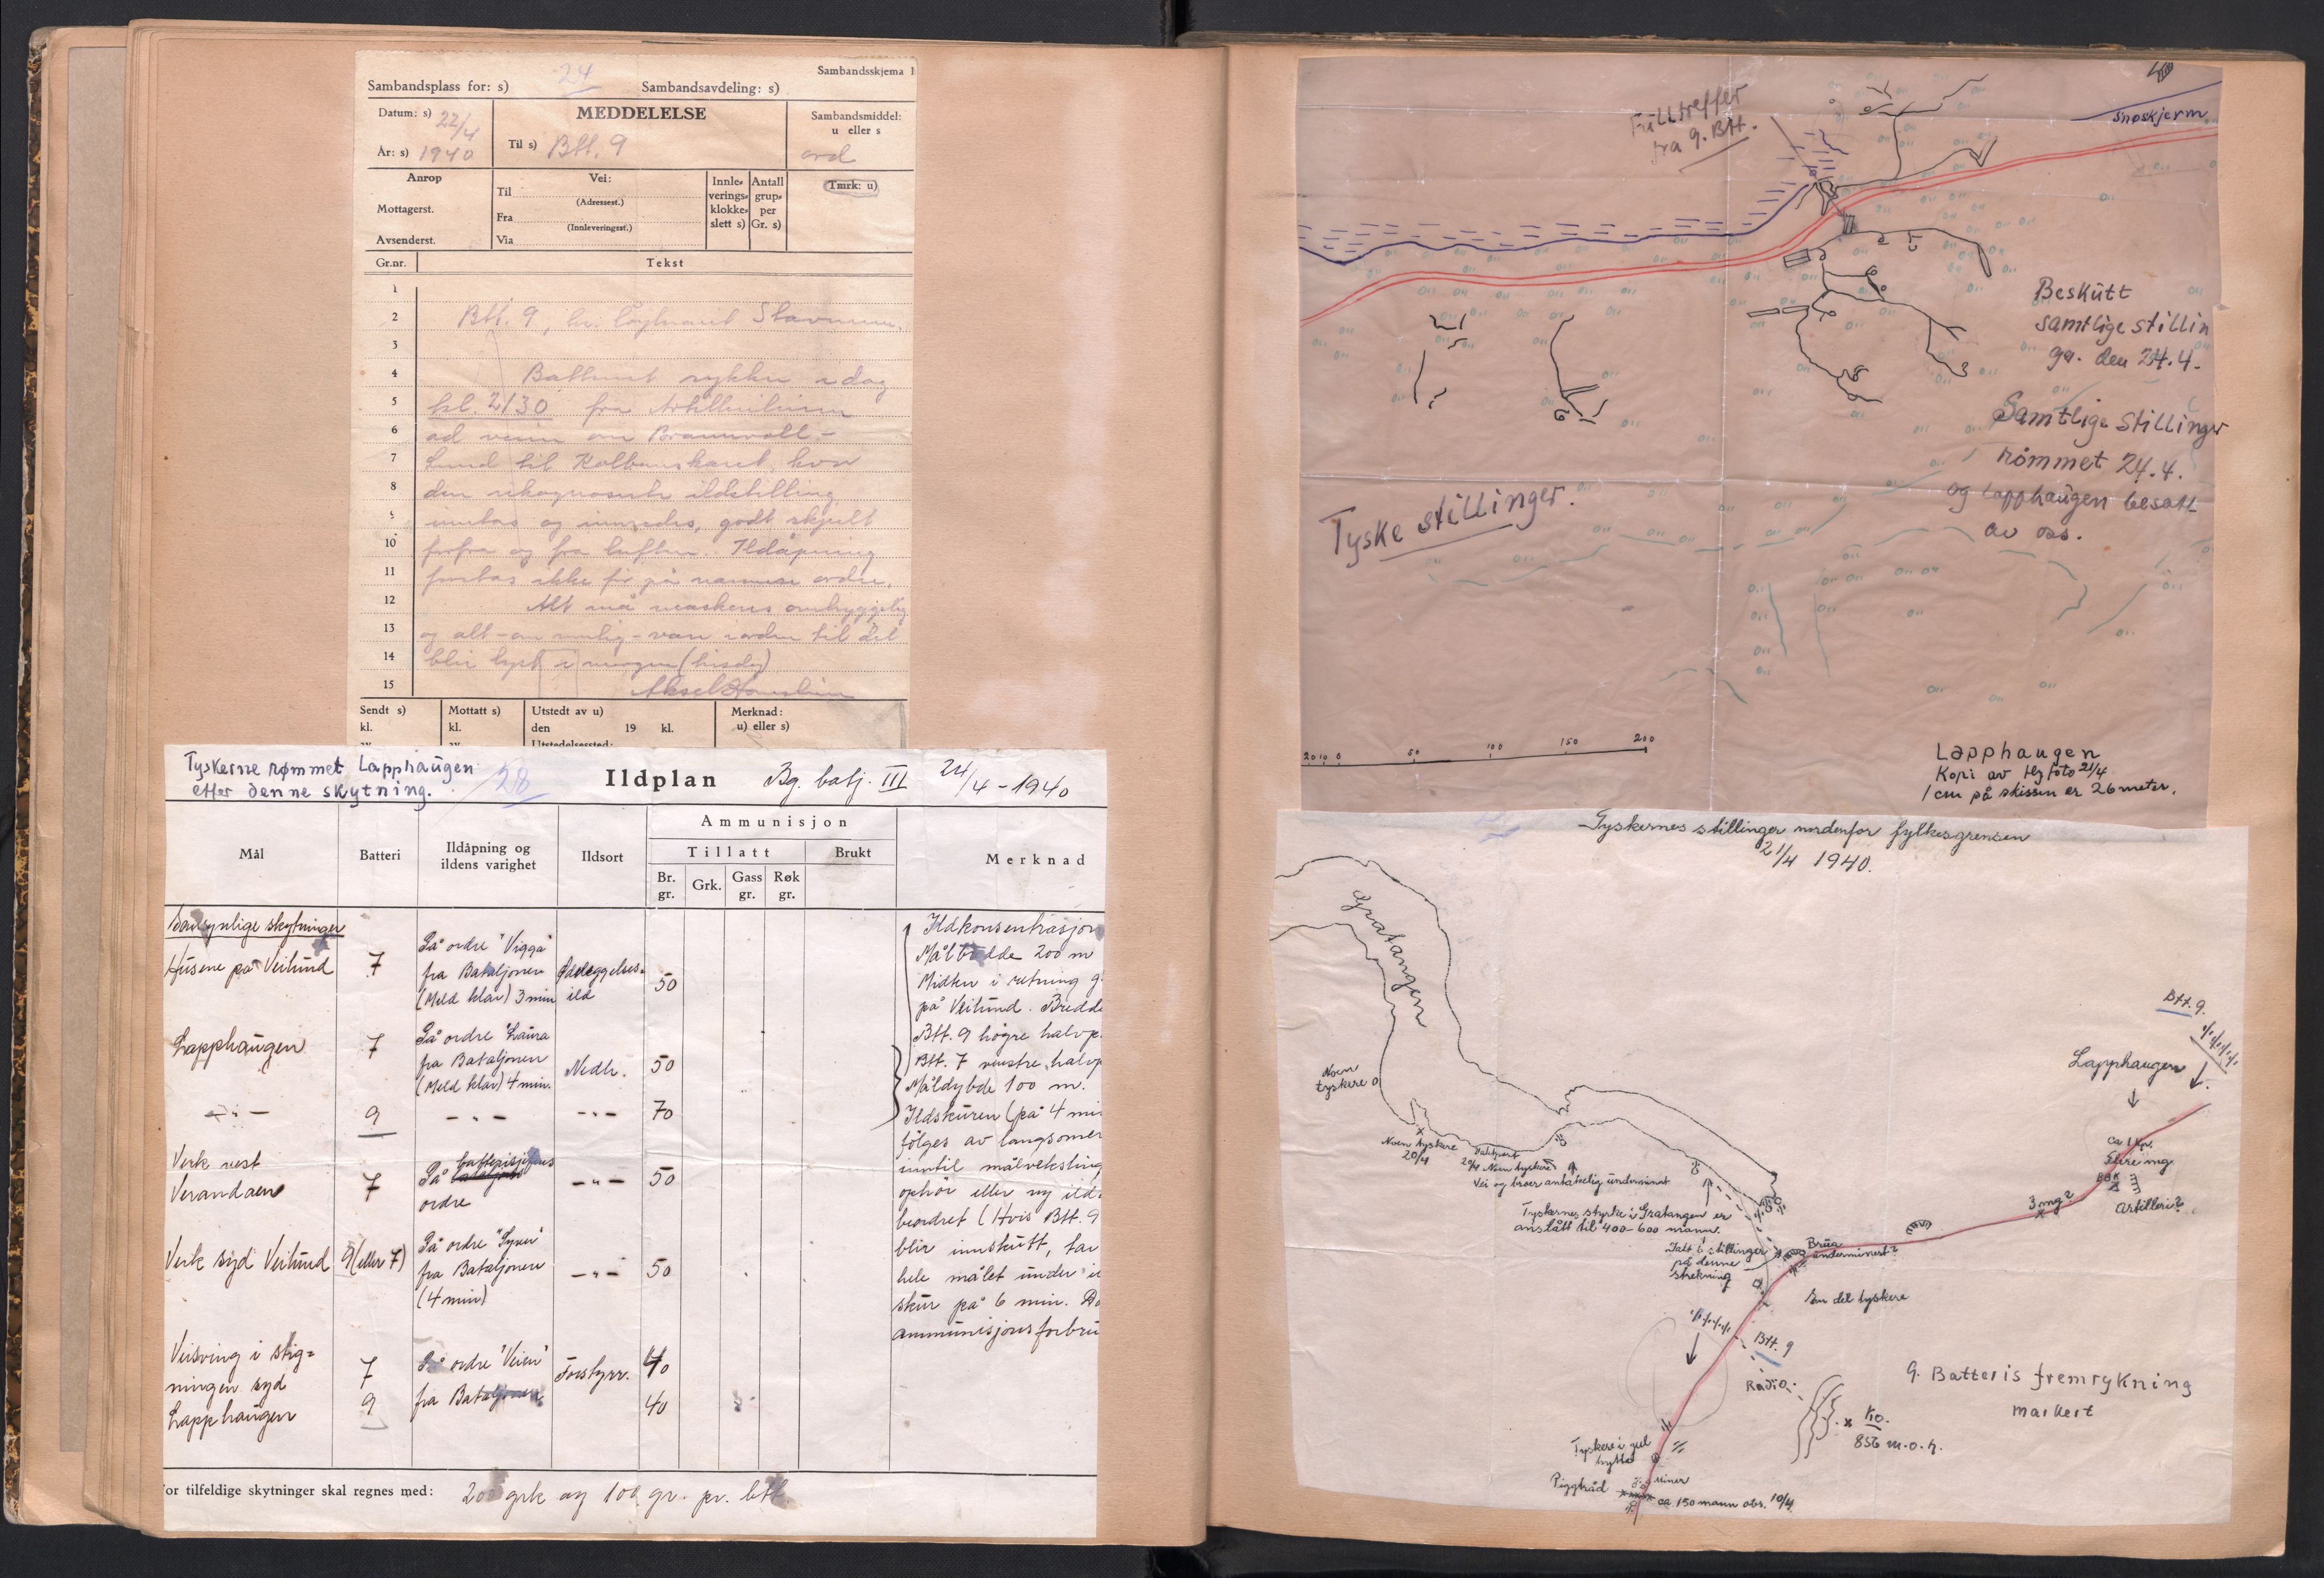 Sambandsskjema 1
24
Sambandsplass for: s)
Sambandsavdeling: s)
Datum: s) 22/4
År: s) 1940
MEDDELELSE
Til s) Btt. 9
Sambandsmiddel:
u eller s
ord
Anrop
Mottagerst.
Avsenderst.
Vei:
Til
(Adressest.)
Fra
(Innleveringsst.)
Via
Innle-
verings-
klokke-
slett s)
Antall
grup-
per
Gr. s)
Tmrk: u)
Gr.nr.
Tekst
1
2 Btt. 9, hr. løytnant
3
4 Batteriet rykker i dag
5 kl. 2130 fra
6 ad veien om
7 Lund til hvor
8 den ildstilling
9 inntas og innredes, godt skjult
10 forfra og fra luften. Ildåpning
11 ikke før på nærmere ordre.
12 Alt må maskeres omhyggelig
13 og alt – om mulig – være i orden til det
14 blir lyst i morgen
15
Sendt s)
kl.
av
Mottatt s)
kl.
av
Utstedt av u)
den 19 kl.
Utstedelsessted:
Merknad:
u) eller s)
Tyskerne rømmet Lapphaugen
etter denne skytning.
28
Ildplan Bg. batj. III 24/4 – 1940
Mål
Batteri
Ildåpning og
ildens varighet
Ildsort
Ammunisjon
Tillatt
Brukt
Br.
gr.
Grk.
Gass
gr.
Røk
gr.
Merknad
Sansynlige skytninger
Husene på Veilund
7
På ordre "Vigga"
fra Bataljonen
(Meld klar) 3 min
Ødeleggelses-
ild
50
Lapphaugen
7
På ordre "Laura
fra Bataljonen
(Meld klar) 4 min.
Nedh.
50
– " –
9
– " –
– " –
70
Verk vest
Verandaen
7
På batterisjefens
ordre
– " –
50
Verk syd Veilund
9 (eller 7)
På ordre "Syver"
fra Bataljonen
(4 min)
– " –
50
Veisving i stig=
ningen syd
Lapphaugen
7
9
På ordre "Veien"
fra Bataljonen
Forstyrr.
40
40
Ildkonsentrasjon
Målbredde 200 m
Midten i retning g
på Veilund. Bredde
Btt. 9 høgre halvp
Btt. 7 venstre halvp
Måldybde 100 m.
Ildskuren (på 4 min
følges av langsomer
inntil målveksling
ophør eller ny ild
beordret (Hvis Btt. 9
blir innskutt, tar
hele målet under i
skur på 6 min. Do
ammunisjonsforbru
or tilfeldige skytninger skal regnes med: 200 grk og 100 gr. pr. btt.
40
Fulltreffer
fra 9. Btt.
Snøskjerm
Beskutt
samtlige stillin
ger. den 24.4.
Samtlige stillinger
rømmet 24.4.
og Lapphaugen besatt
av oss.
Tyske stillinger.
20 10 0 50 100 150 200
Lapphaugen
Kopi av flyfoto 21/4
1 cm på skissen er 26 meter.
Tyskernes stillinger nordenfor fylkesgrensen
21/4 1940.
Gratangen
Noen
tyskere
Noen tyskere
20/4
20/4 Noen tyskere
Vei og broer antakelig underminert
Tyskernes styrke i Gratangen er
anslått til 400–600 mann.
Talt 6 stillinger
på denne
strekning
Brua
underminert?
En del tyskere
Btt. 9.
Lapphaugen
ca 1 kp.
Flere mg
Artilleri?
3 mg?
Btt. 9
Radio
Ko.
856 m.o.h.
9. Batteris fremrykning
markert
Tyskere i gul
hytte
Piggtråd
Miner
ca 150 mann obs. 10/4